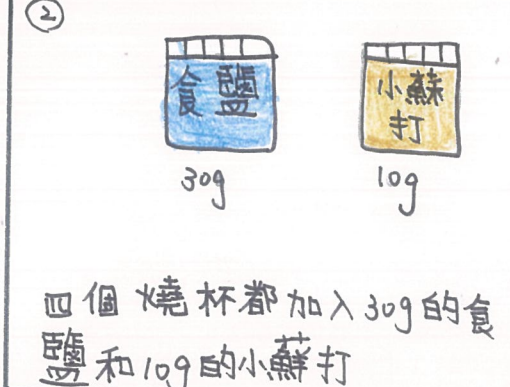 ②
食鹽
小蘇
打
30g
10g
四個燒杯都加入30g的食
鹽和10g的小蘇打